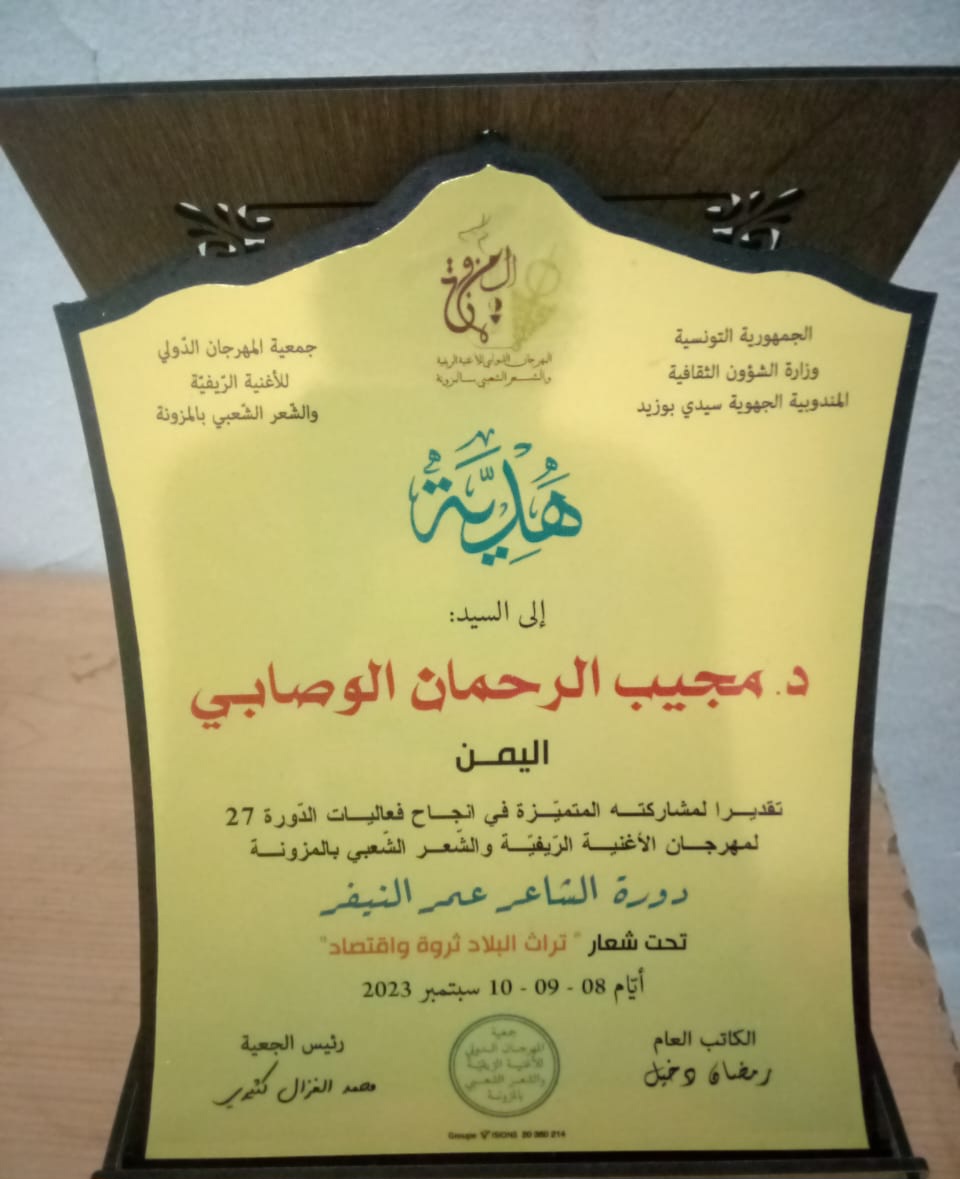 المزونة
المهرجان الدولي للأغنية الريفية
والشعر الشعبي بالمزونة
الجمهورية التونسية
وزارة الشؤون الثقافية
المندوبية الجهوية سيدي بوزيد
جمعية المهرجان الدّولي
للأغنية الرّيفيّة
والشّعر الشّعبي بالمزونة
هَدِيَّةٌ
إلى السيد:
د. مجيب الرحمان الوصابي
اليمن
تقديرا لمشاركته المتميّزة في انجاح فعاليات الدّورة 27
لمهرجان الأغنية الرّيفيّة والشّعر الشّعبي بالمزونة
دورة الشاعر عمر النيفر
تحت شعار "تراث البلاد ثروة واقتصاد"
أيّام 08 - 09 - 10 سبتمبر 2023
الكاتب العام
رمضان دخيل
رئيس الجعية
محمد الغزال كثيري
جمعية
المهرجان الدولي
للأغنية الريفيّة
والشعر الشعبي
بالمزونة
Groupe VISIONS 20 360 214